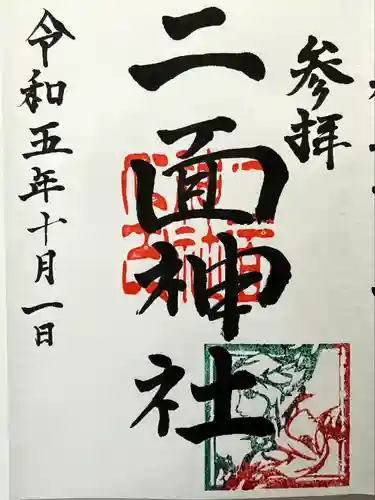 参拝
二面神社
令和五年十月一日